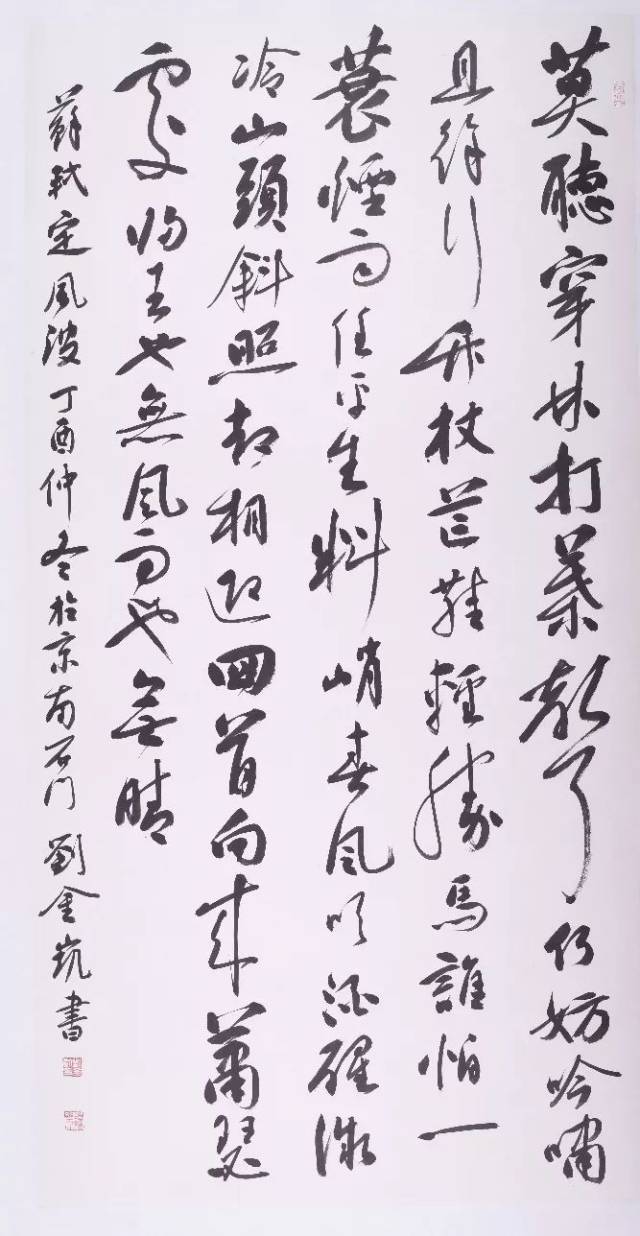 莫聽穿林打葉聲何妨吟嘯
且徐行竹杖芒鞋輕勝馬誰怕一
蓑煙雨任平生料峭春風吹酒醒微
冷山頭斜照却相迎回首向來蕭瑟
處歸去也無風雨也無晴
蘇軾定風波丁酉仲冬於京南石門劉金書